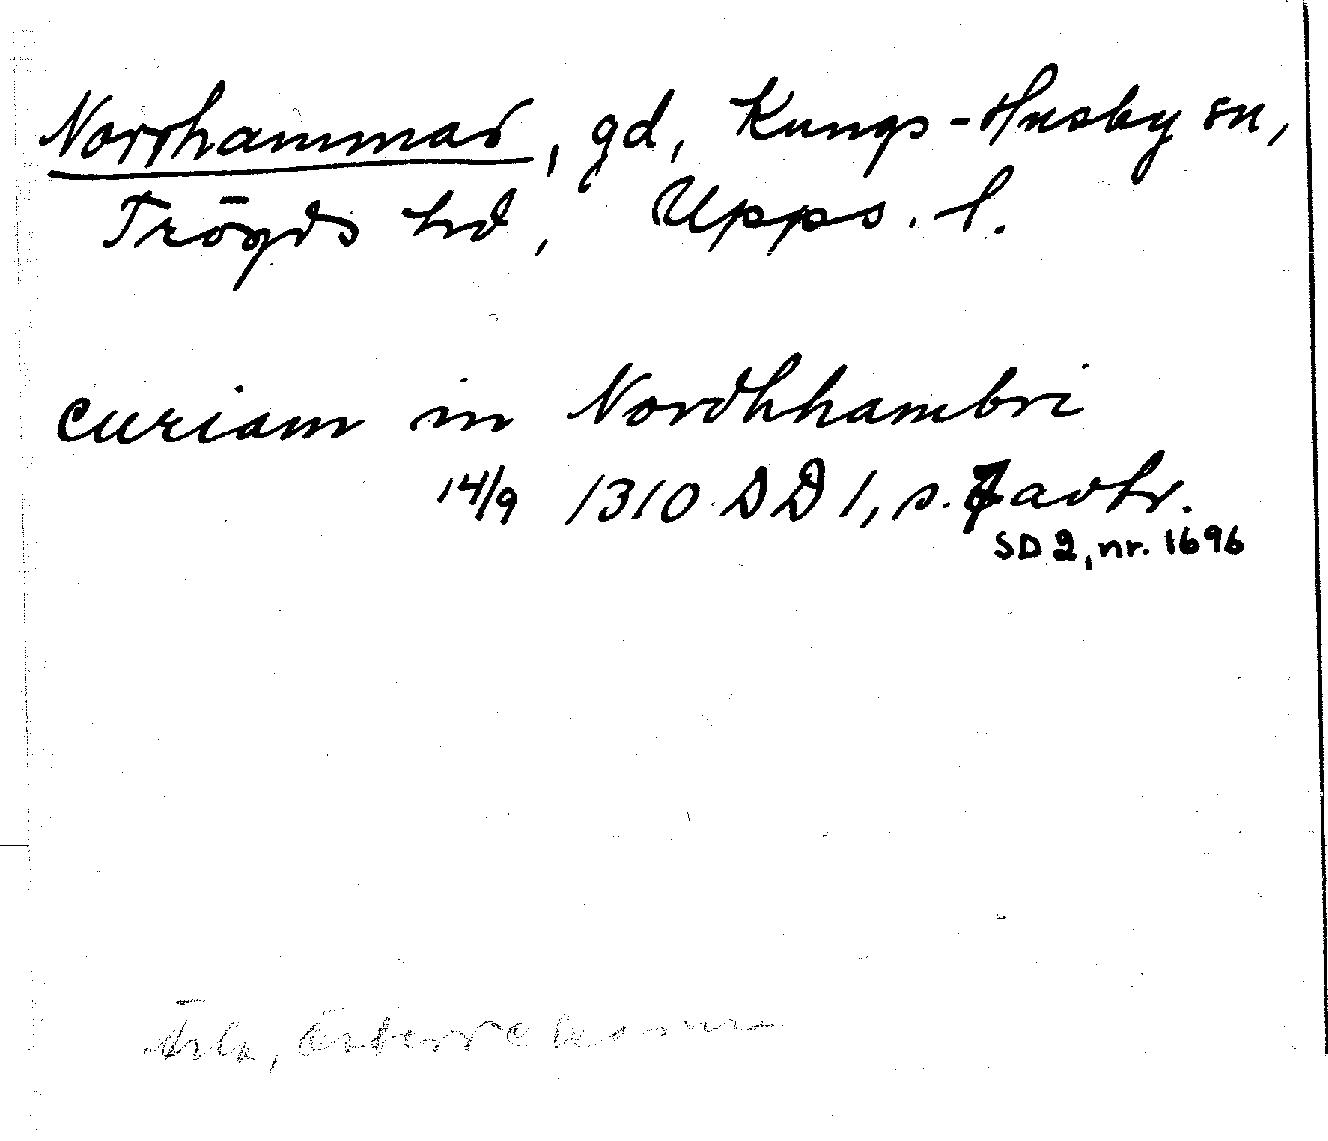 Norrhammar, gd, Kungs-Husby sn,
Trögds hd, Upps. l.
curiam in Nordhhambri
14/9 1310 DD 1, s. 7 avtr.
SD 2, nr. 1696